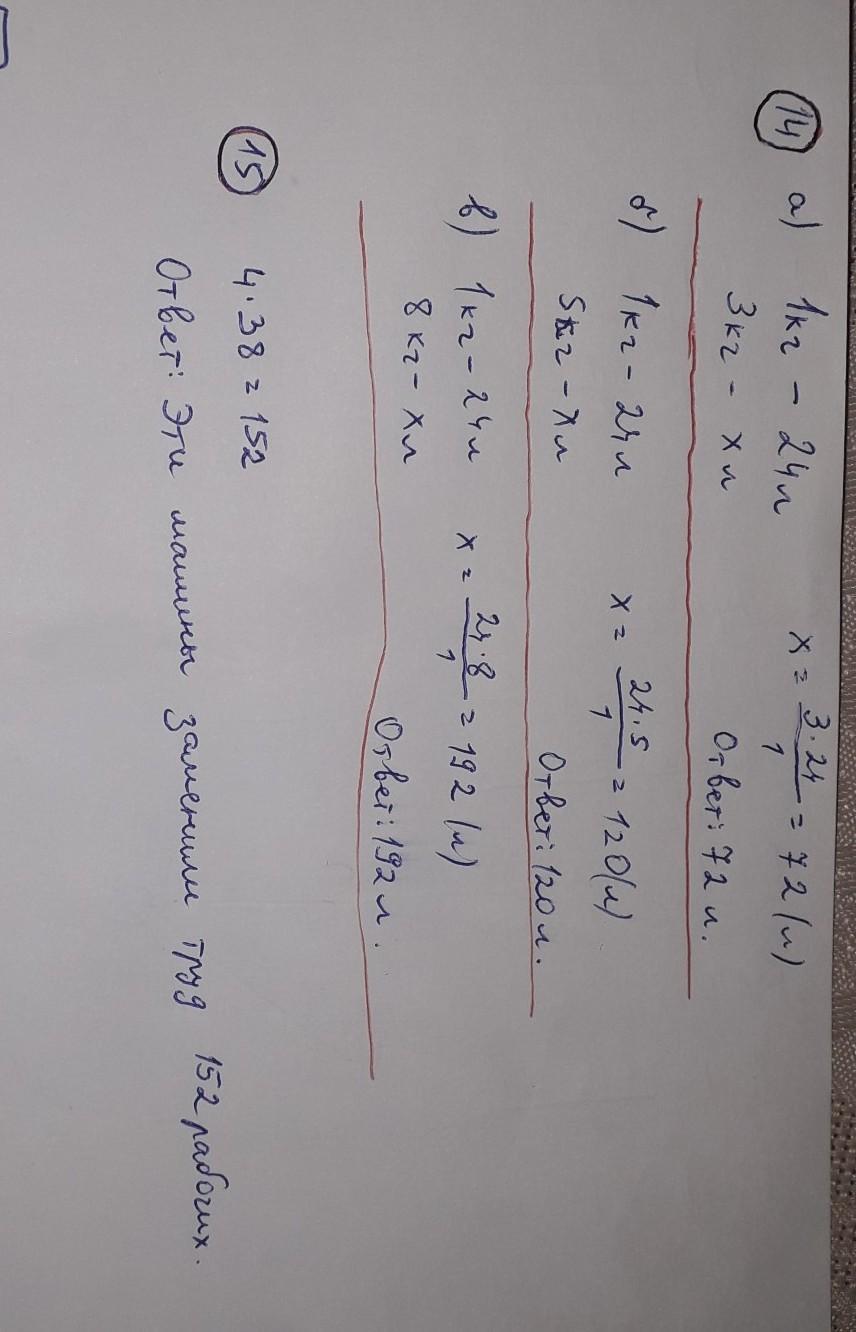 14 а) 1кг – 24л x = 3·24/1 = 72 (л)
3кг – x л Ответ: 72 л.
б) 1кг – 24л x = 24·5/1 = 120(л)
5кг – xл Ответ: 120л.
в) 1кг – 24л x = 24·8/1 = 192 (л)
8 кг – x л Ответ: 192 л.
15 4·38 = 152
Ответ: Эти машины заменили труд 152 рабочих.